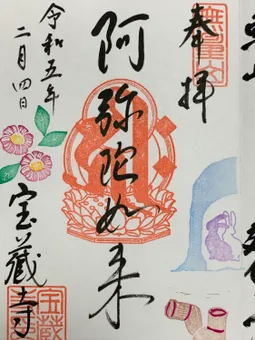 奉拝
阿弥陀如来
令和五年
二月四日
宝蔵寺